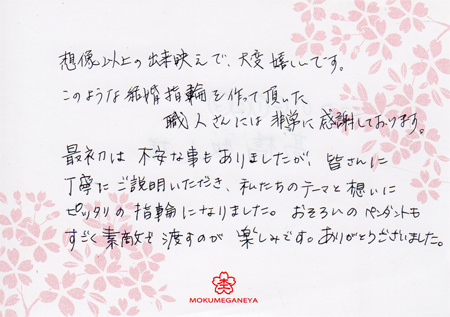 想像以上の出来映えで、大変嬉しいです。
このような結婚指輪を作って頂いた
職人さんには非常に感謝しております。
最初は不安な事もありましたが、皆さんに
丁寧にご説明いただき、私たちのテーマと想いに
ピッタリの指輪になりました。おそろいのペンダントも
すごく素敵で渡すのが楽しみです。ありがとうございました。
MOKUMEGANEYA